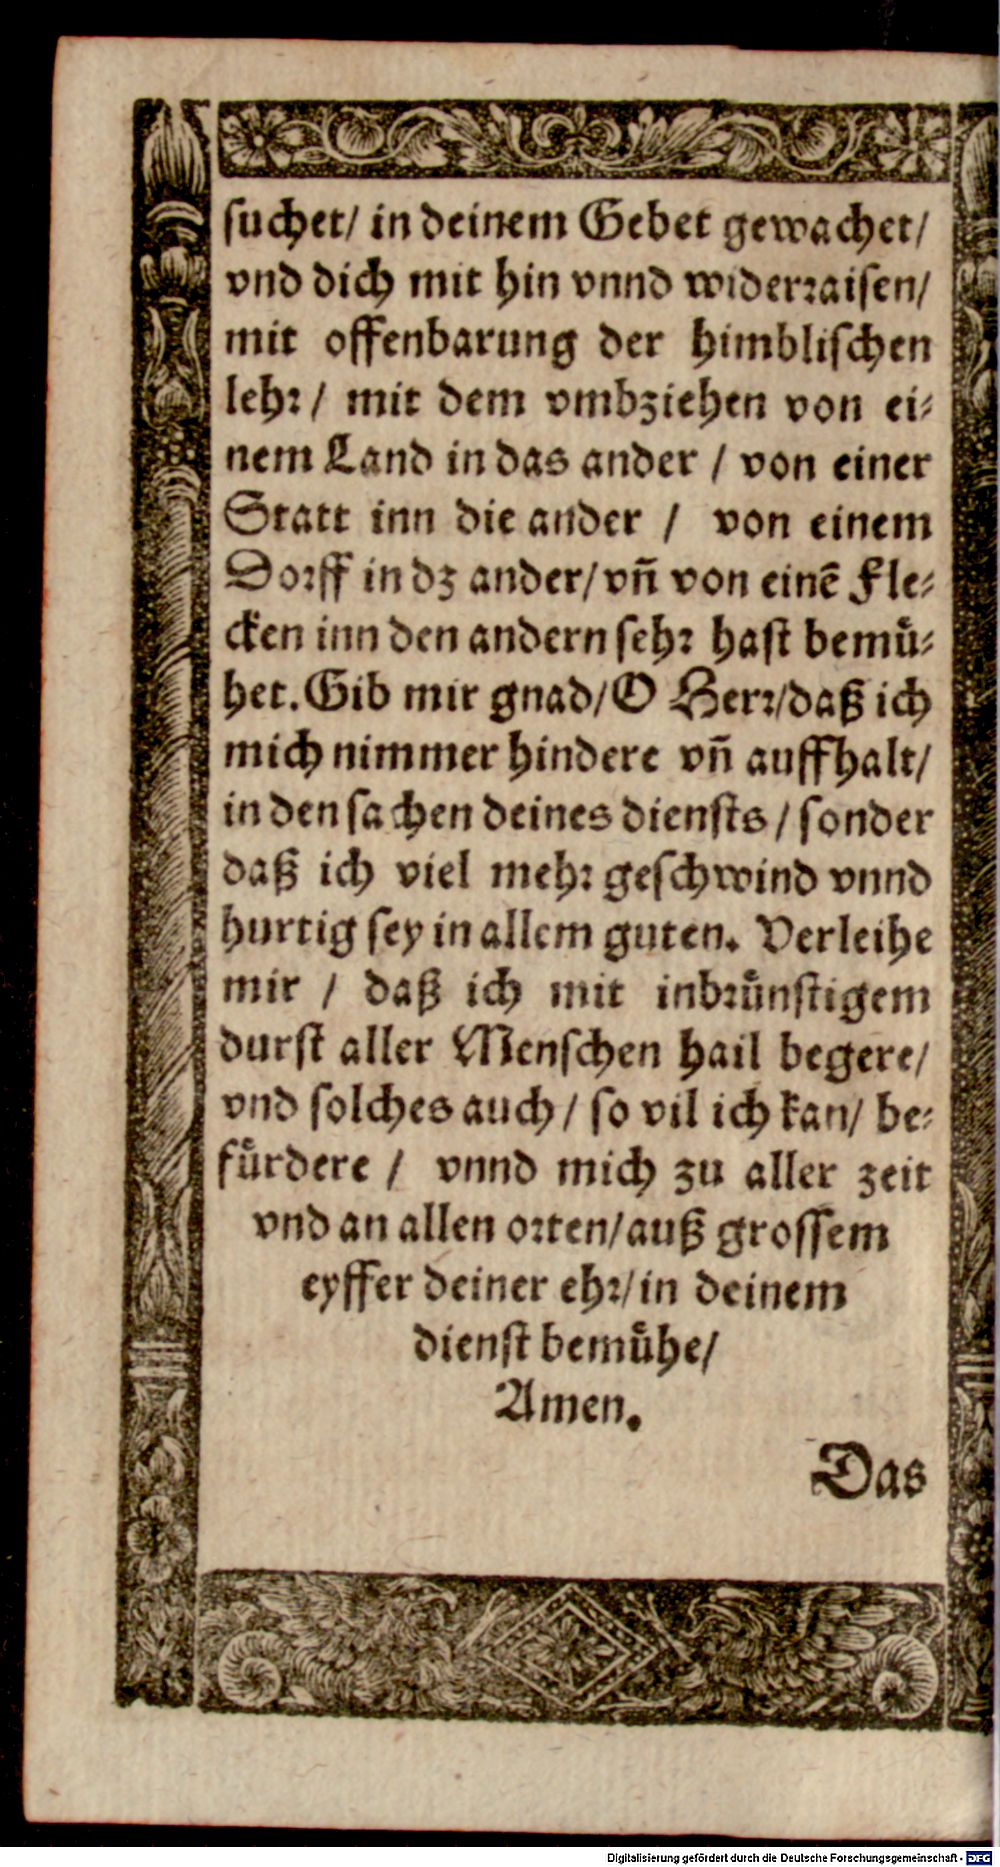 suchet/ in deinem Gebet gewachet/
vnd dich mit hin vnnd widerraisen/
mit offenbarung der himblischen
lehr/ mit dem vmbziehen von ei⸗
nem Land in das ander / von einer
Statt inn die ander / von einem
Dorff in dz ander/ vñ von einẽ Fle⸗
cken inn den andern sehr hast bemuͤ⸗
het. Gib mir gnad/ O Herr/ daß ich
mich nimmer hindere vñ auffhalt/
in den sachen deines diensts / sonder
daß ich viel mehr geschwind vnnd
hurtig sey in allem guten. Verleihe
mir / daß ich mit inbruͤnstigem
durst aller Menschen hail begere/
vnd solches auch / so vil ich kan/ be⸗
fuͤrdere / vnnd mich zu aller zeit
vnd an allen orten/ auß grossem
eyffer deiner ehr/ in deinem
dienst bemuͤhe/
Amen.
Das
Digitalisierung gefördert durch die Deutsche Forschungsgemeinschaft - DFG